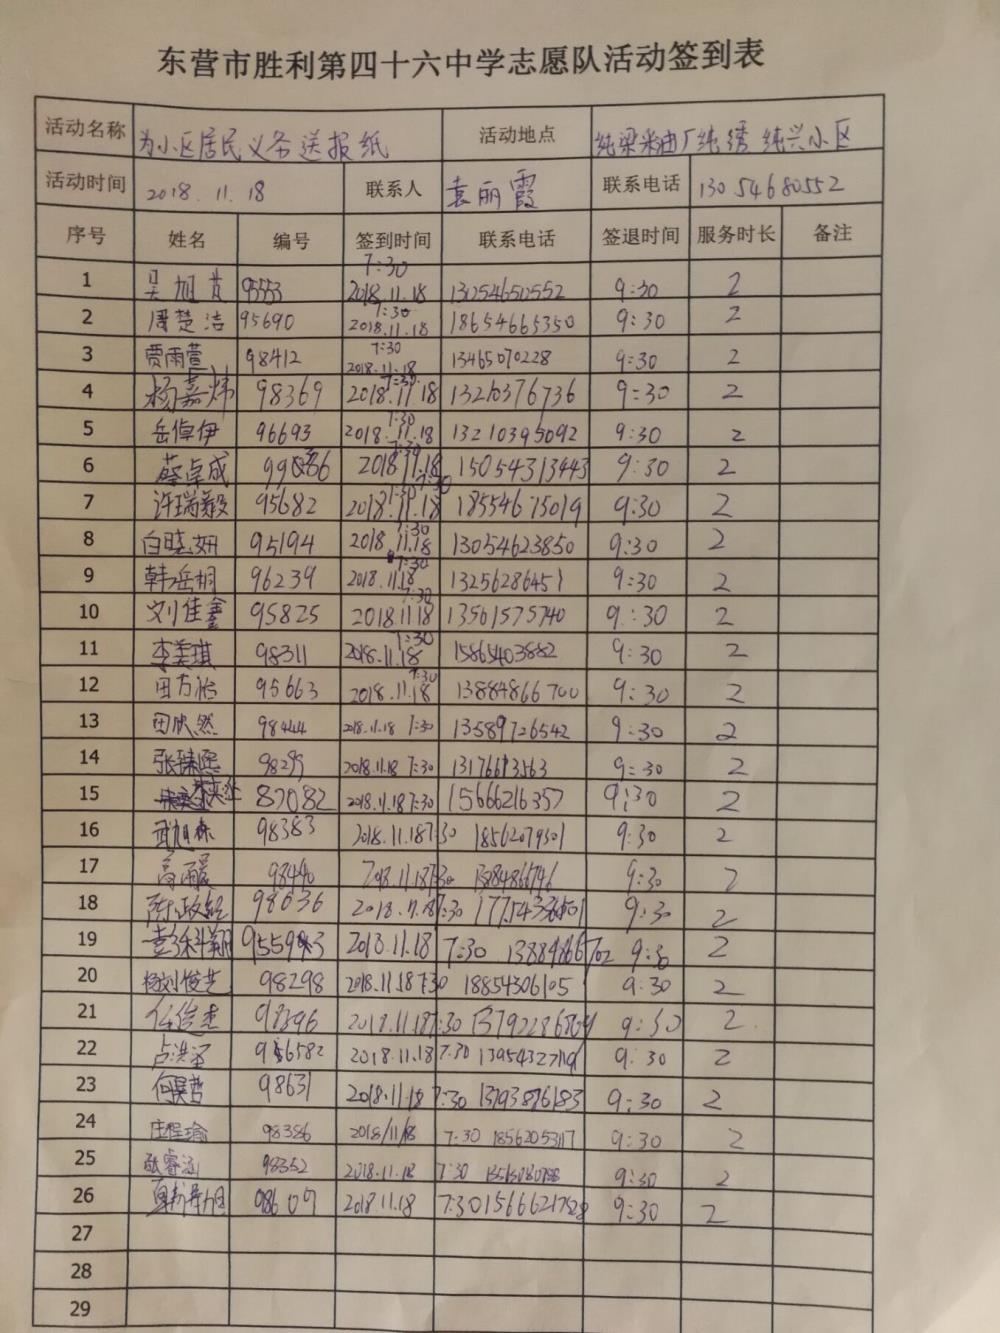 东营市胜利第四十六中学志愿队活动签到表
活动名称 为小区居民义务送报纸 活动地点 纯梁采油厂纯绣 纯兴小区
活动时间 2018.11.18 联系人 袁丽霞 联系电话 13054680552
序号 姓名 编号 签到时间 联系电话 签退时间 服务时长 备注
1 吴旭 95553 7:30 2018.11.18 13054650552 9:30 2
2 周楚洁 95690 7:30 2018.11.18 18654665350 9:30 2
3 贾雨萱 98412 7:30 2018.11.18 13465070228 9:30 2
4 杨嘉炜 98369 7:30 2018.11.18 13210376736 9:30 2
5 岳倬伊 96693 7:30 2018.11.18 13210395092 9:30 2
6 蔡卓成 7:30 2018.11.18 15054313443 9:30 2
7 许瑞毅 95682 7:30 2018.11.18 18554675019 9:30 2
8 白晓妍 95194 7:30 2018.11.18 13054623850 9:30 2
9 韩岳桐 96239 7:30 2018.11.18 13256286451 9:30 2
10 刘佳鑫 95825 7:30 2018.11.18 13561575740 9:30 2
11 李美琪 98311 7:30 2018.11.18 15865403882 9:30 2
12 田方怡 95663 7:30 2018.11.18 13884866700 9:30 2
13 田欣然 98444 2018.11.18 7:30 13589726542 9:30 2
14 张臻熙 98299 2018.11.18 7:30 9:30 2
15 87082 2018.11.18 7:30 15666216357 9:30 2
16 武旭森 98383 2018.11.18 7:30 18562079301 9:30 2
17 高雨晨 98440 2018.11.18 7:30 9:30 2
18 98636 2018.11.18 7:30 9:30 2
19 2018.11.18 7:30 9:30 2
20 杨刘俊艺 98298 2018.11.18 7:30 18854306105 9:30 2
21 任俊杰 98396 2018.11.18 7:30 9:30 2
22 卢洪圣 2018.11.18 7:30 9:30 2
23 何昊哲 98631 2018.11.18 7:30 13793876183 9:30 2
24 庄程瑜 98386 2018/11/18 7:30 18562053117 9:30 2
25 张睿涵 98352 2018.11.18 7:30 9:30 2
26 98607 2018.11.18 7:30 15666217528 9:30 2
27
28
29